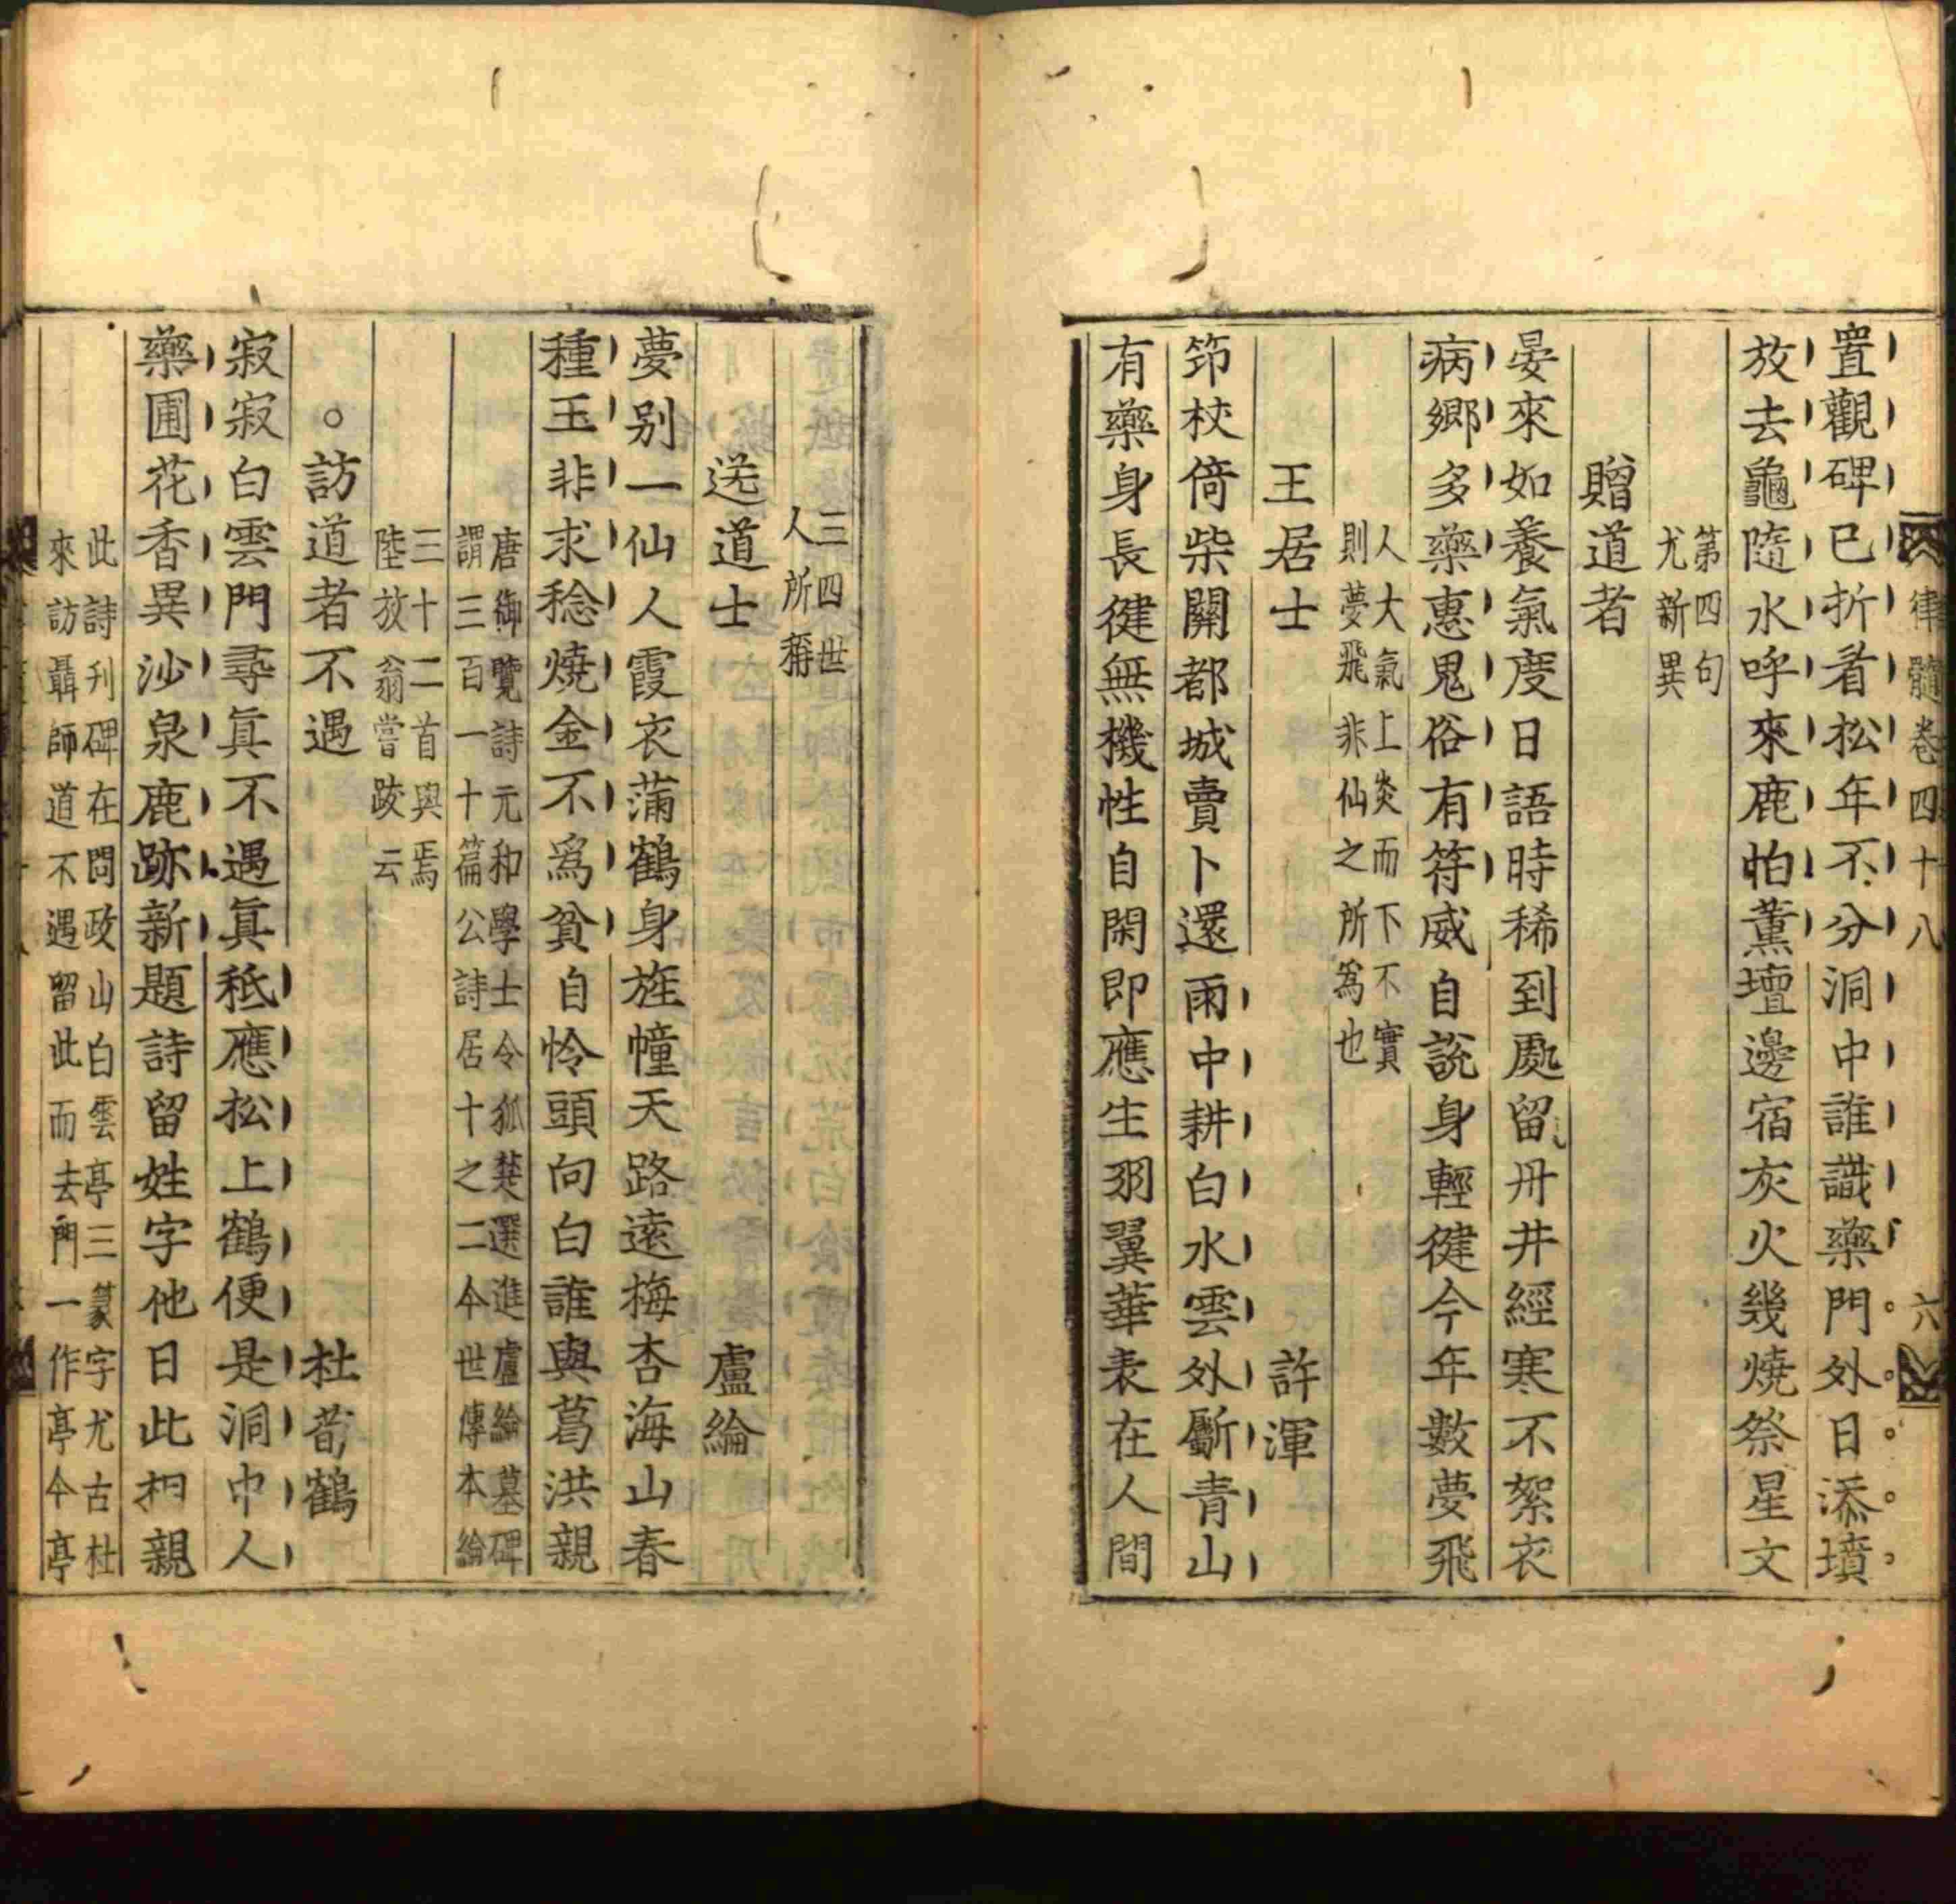 律髓卷四十八 六
置觀碑已折看松年不分洞中誰識藥門外日添墳
放去龜隨水呼來鹿怕薰壇邊宿灰火幾燒祭星文
第四句
尤新異
贈道者
晏來如養氣度日語時稀到處留丹井經寒不絮衣
病鄉多藥惠鬼俗有符威自說身輕健今年數夢飛
人大氣上炎而下不實
則夢飛非仙之所為也
王居士 許渾
筇杖倚柴關都城賣卜還雨中耕白水雲外斸青山
有藥身長健無機性自閑即應生羽翼華表在人間
三四世
人所稱
送道士 盧綸
夢別一仙人霞衣滿鶴身旌幢天路遠梅杏海山春
種玉非求稔燒金不為貧自怜頭向白誰與葛洪親
唐御覽詩元和學士令狐楚選進盧綸墓碑
謂三百一十篇公詩居十之二今世傳本綸
三十二首與焉
陸放翁嘗跋云
○訪道者不遇 杜荀鶴
寂寂白雲門尋真不遇真秖應松上鶴便是洞中人
藥圃花香異沙泉鹿跡新題詩留姓字他日此相親
此詩刊碑在問政山白雲亭三篆字尤古杜
來訪聶師道不遇留此而去門一作亭今亭